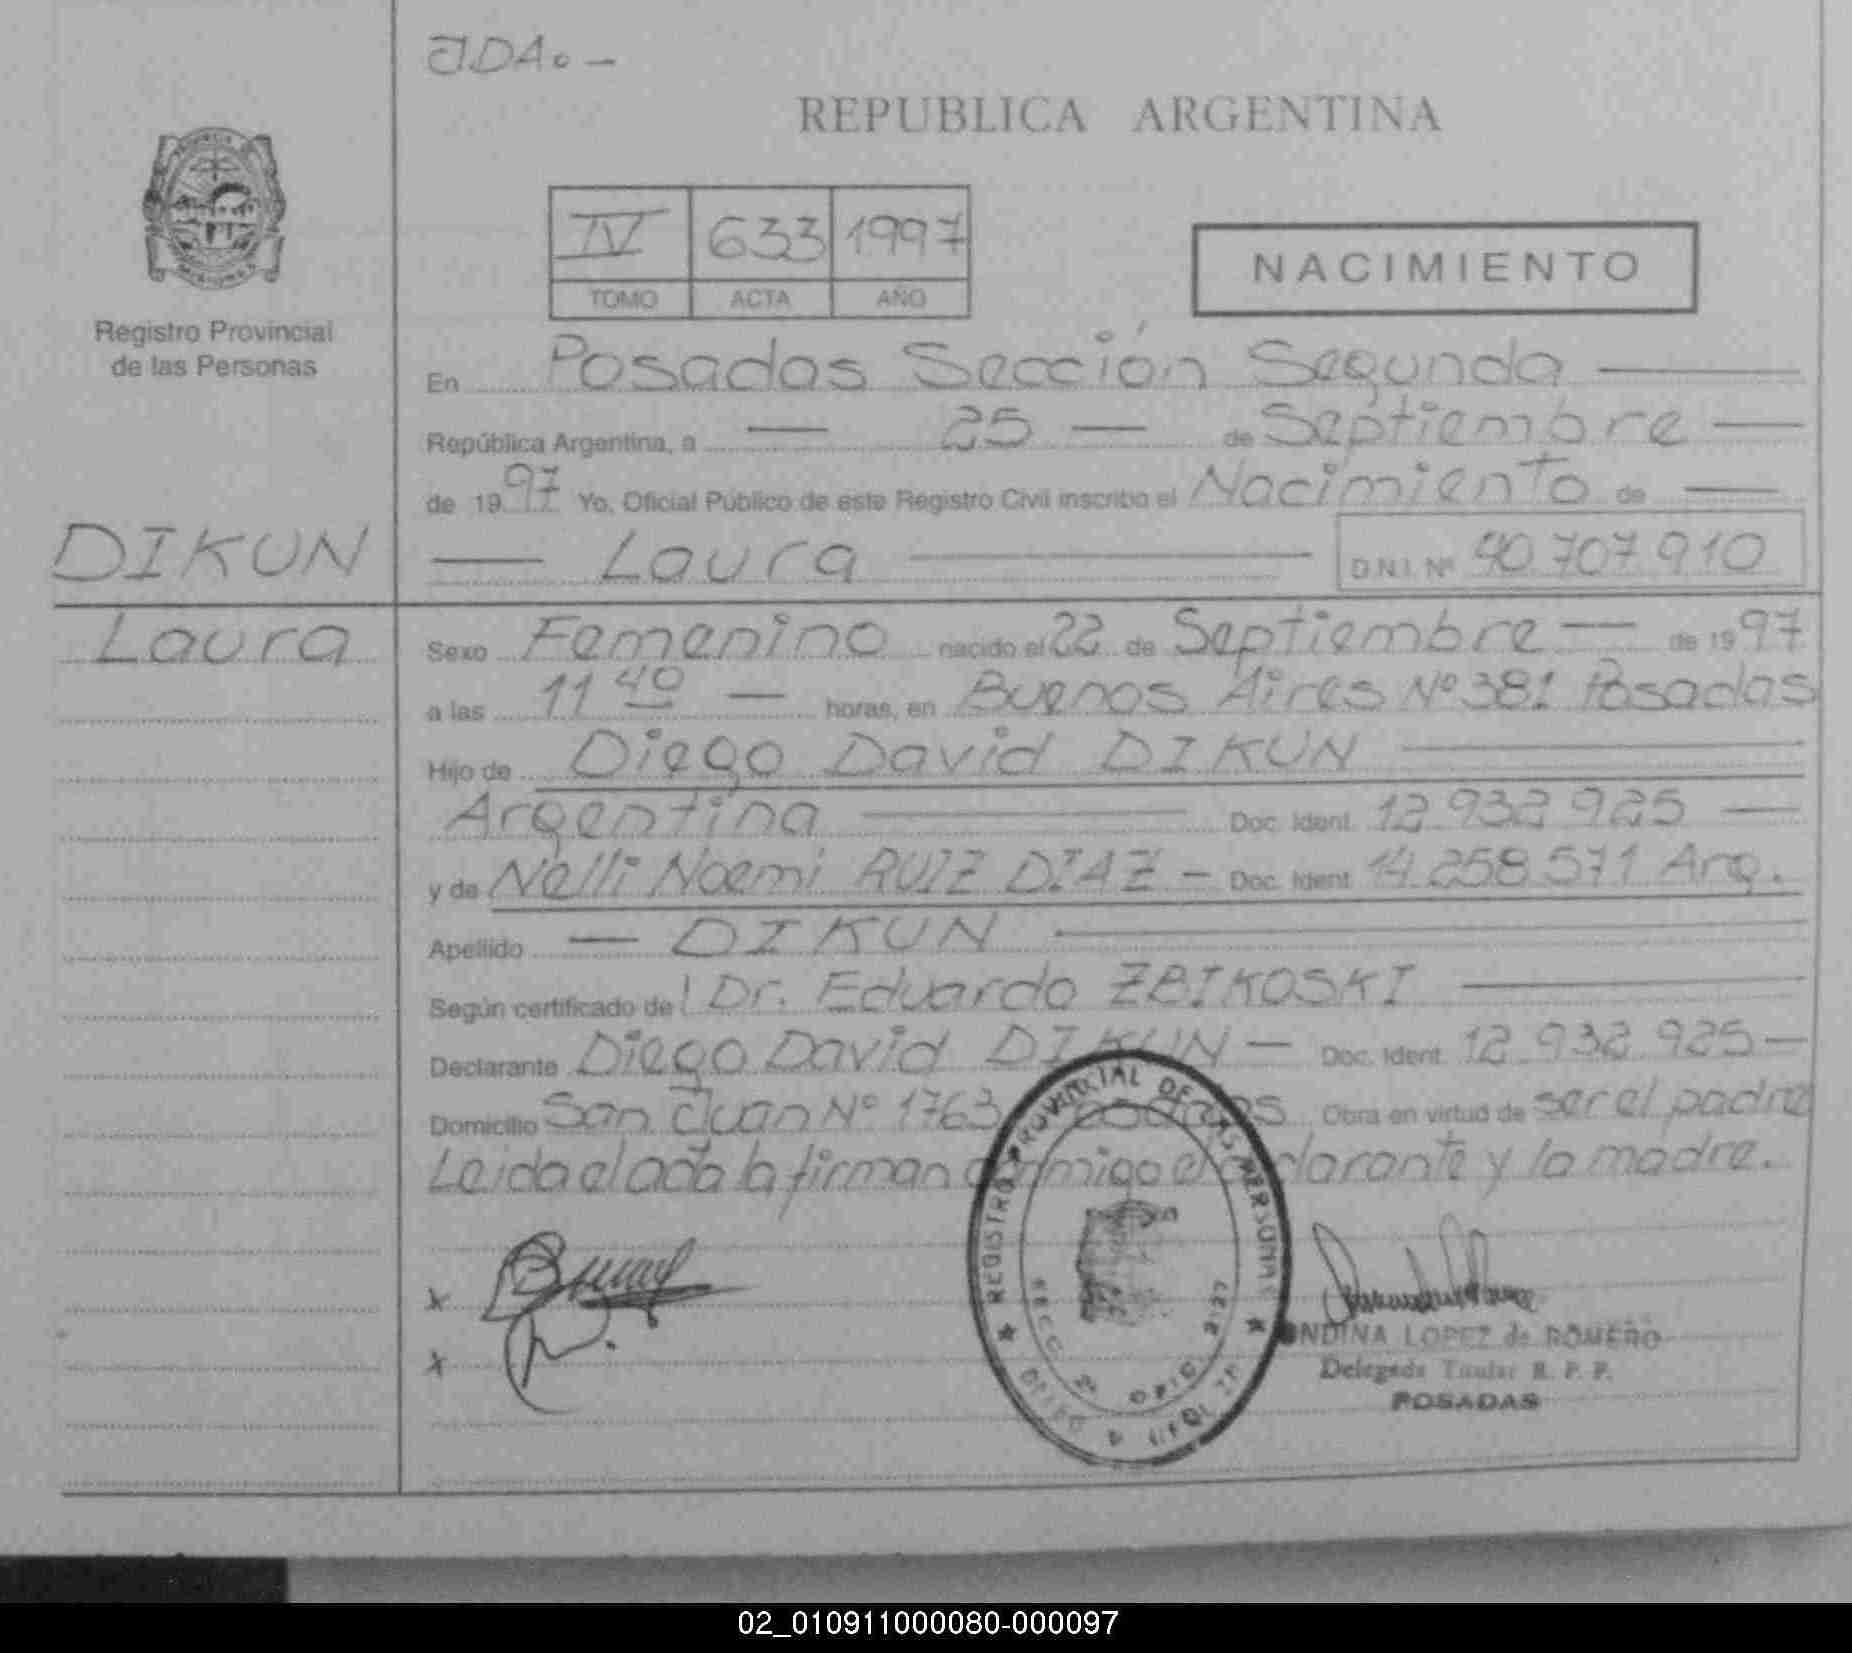 JDA.-
REPUBLICA ARGENTINA
IV 633 1997
TOMO ACTA AÑO
NACIMIENTO
Registro Provincial
de las Personas
En Posadas Sección Segunda
República Argentina, a 25 de Septiembre
de 1997 Yo, Oficial Público de este Registro Civil inscribo el Nacimiento de
DIKUN
Laura D.N.I. Nº 40.707.910
Laura
Sexo Femenino nacido el 22 de Septiembre de 1997
a las 11 40 horas, en Buenos Aires Nº 381 Posadas
Hijo de Diego David DIKUN
Argentina Doc. Ident. 12.932.925
y de Nelli Noemi RUIZ DIAZ - Doc. Ident. 14.258.571 Arg.
Apellido DIKUN
Según certificado de Dr. Eduardo ZBIKOSKI
Declarante Diego David DIKUN - Doc. Ident. 12.932.925
Domicilio San Juan Nº 1763 Posadas Obra en virtud de ser el padre
Leida el acta la firman conmigo el declarante y la madre.
x
x
REGISTRO PROVINCIAL DE LAS PERSONAS
SECC. 2ª OFIC. 2127
ONDINA LOPEZ de ROMERO
Delegada Titular R. P. P.
POSADAS
02_010911000080-000097